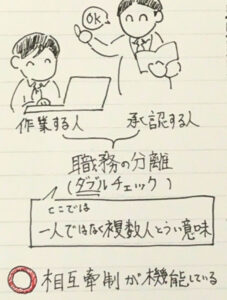 OK
作業する人 承認する人
職務の分離
(ダブルチェック)
ここでは
一人ではなく複数人とういう意味
相互牽制が機能している